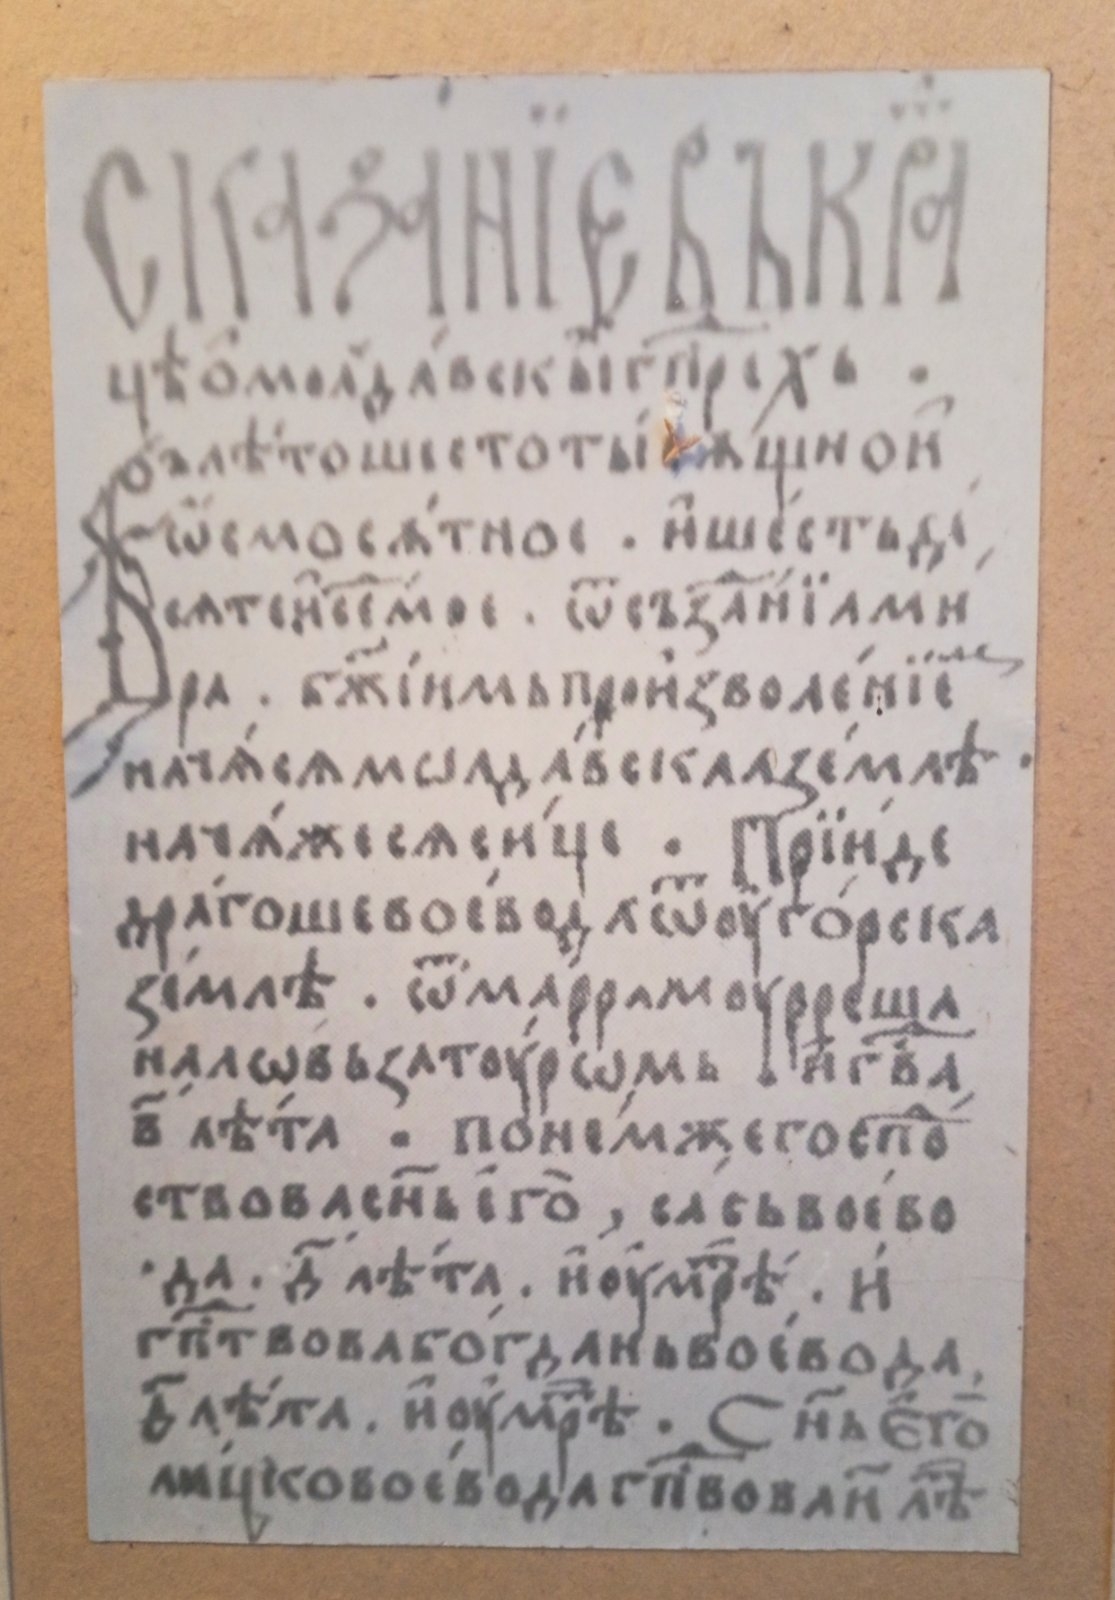 СКАЗАНЇЕ ВЪКРАⷮ
цѣ ѡ молдавскыⷯ гⷭ҇прехь .
Въ лѣто шестотысѧщной
ѡсмосѧтное . и шестьде
сѧте и седмое . ѿ създанїа ми
ра . бж҃їимь произволенїеⷨ
начѧсѧ мѡлдавскаа землѣ .
начѧжесѧ сице . Прїиде
драгошь воевода ѿ оугорска
землѣ . ѿ марамоуреша
на ловь за тоурѡмь . и гⷭ҇пва
в҃ лѣта . по немже госпⷪ
ствова сн҃ь его , сась воево
да . д҃ лѣта . и оумрѣ . и
гⷭ҇птвова богдань воевода ,
д҃ лѣта . и оумрѣ . Сн҃ь его
лацко воевода гⷭ҇пвова н҃ лѣ